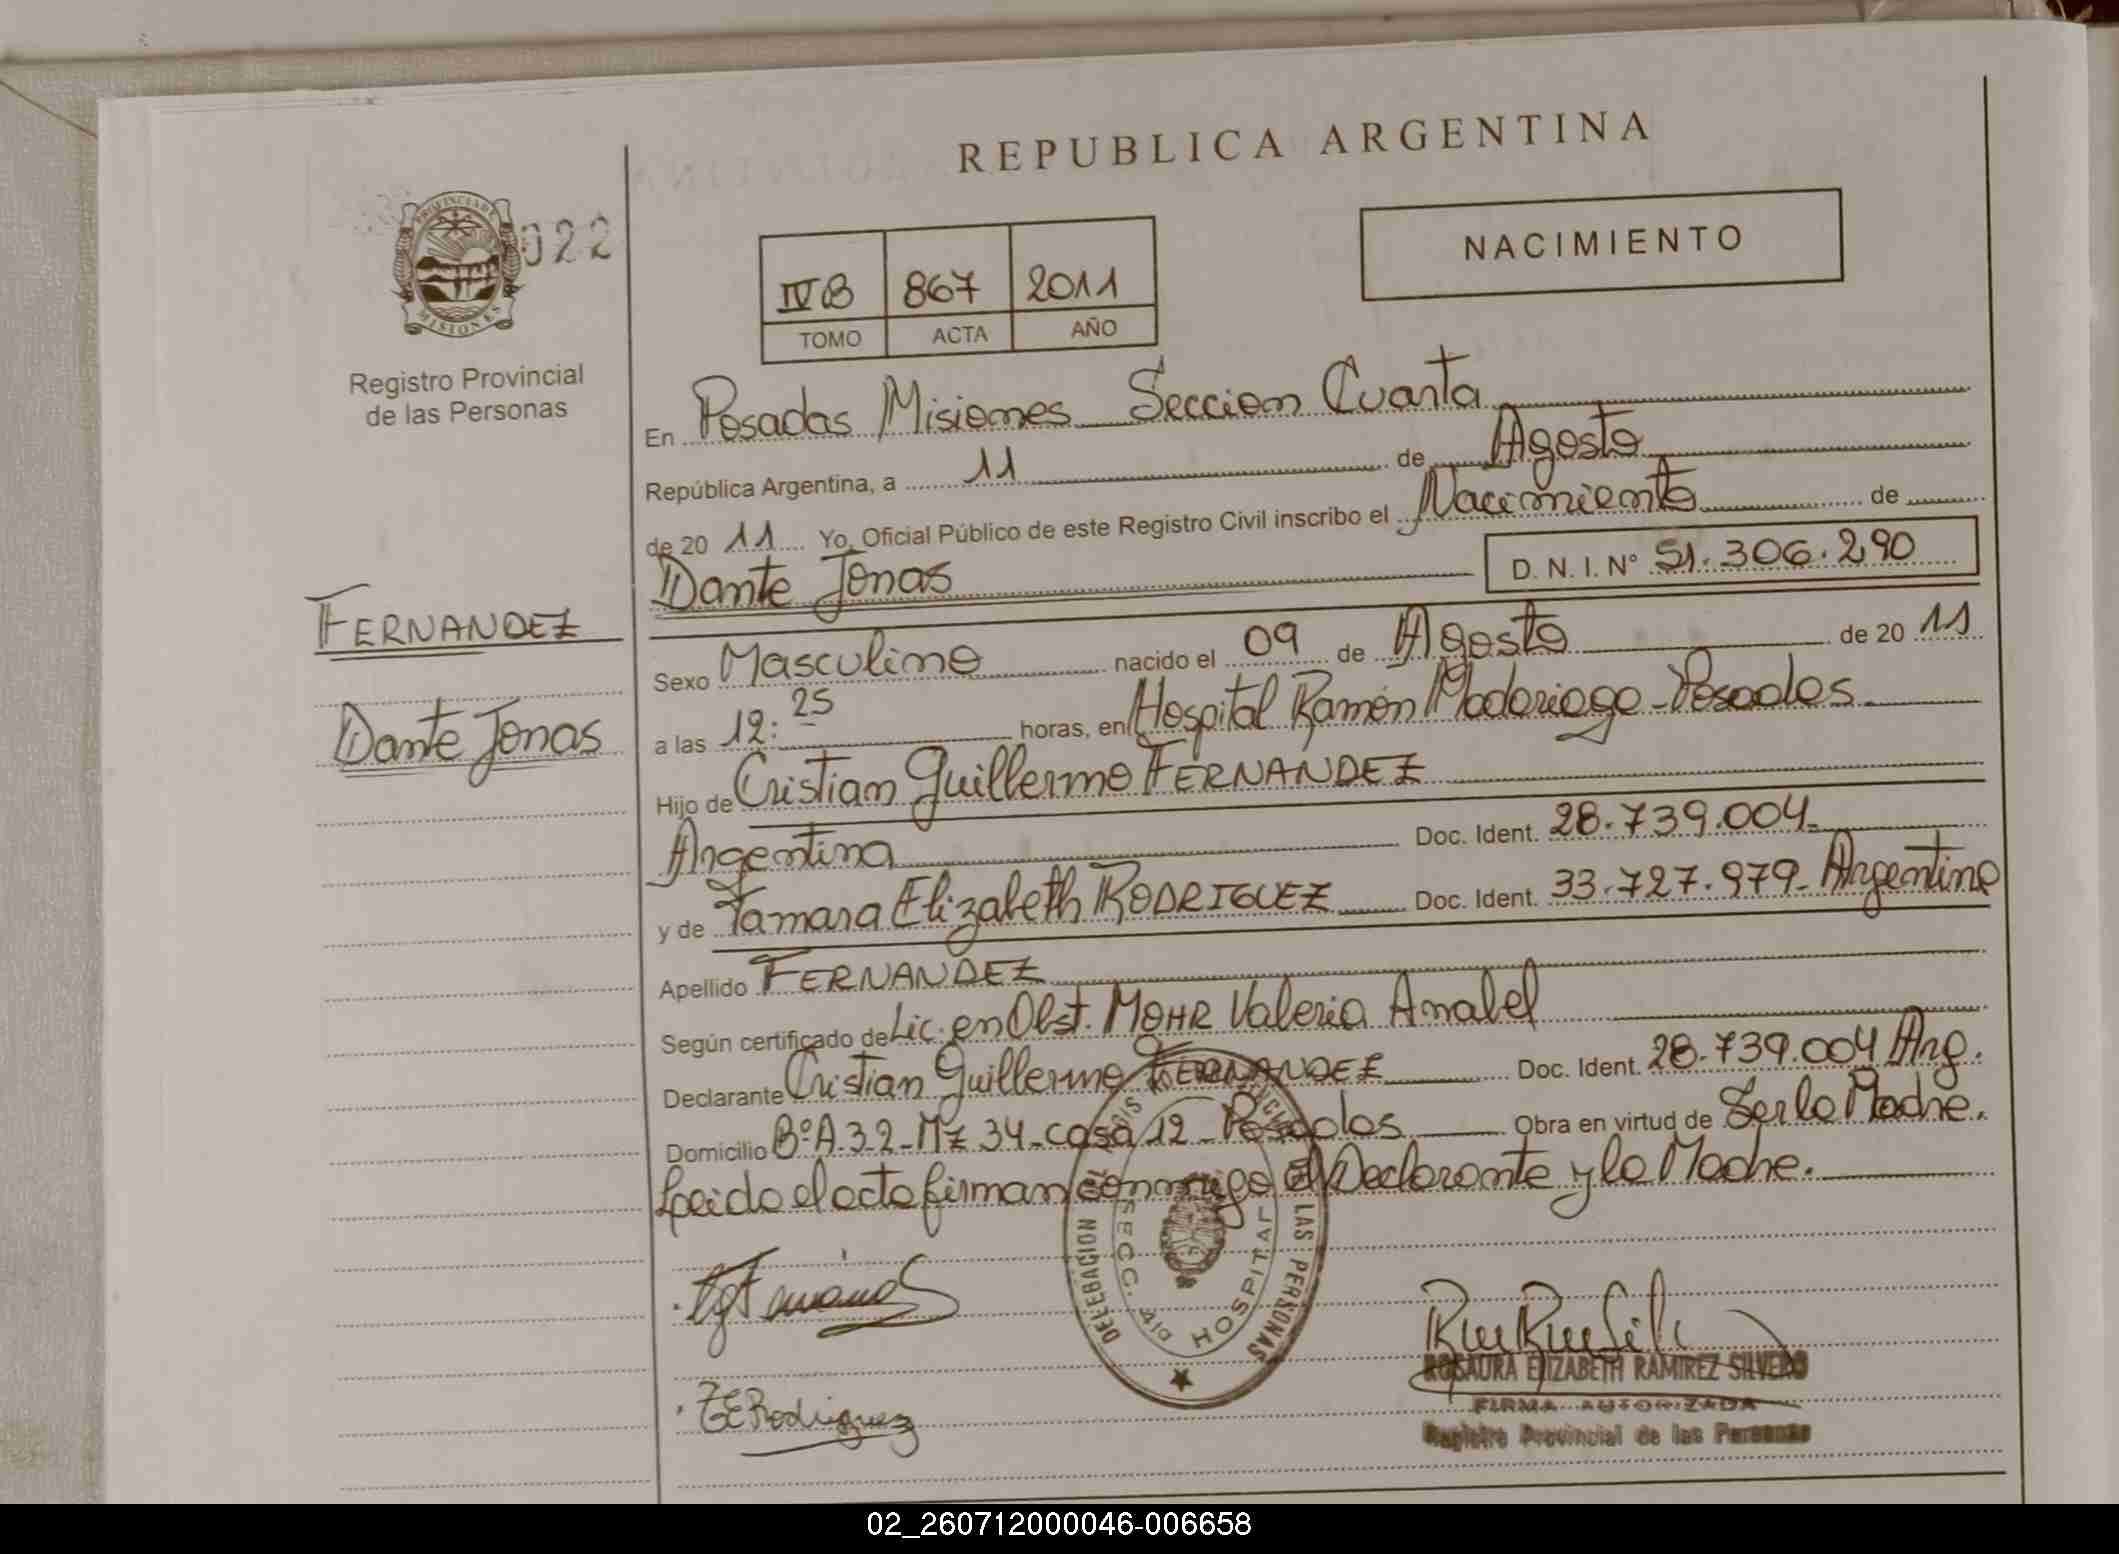 REPUBLICA ARGENTINA
PROVINCIA DE
MISIONES
022
Registro Provincial
de las Personas
NACIMIENTO
IVB 867 2011
TOMO ACTA AÑO
En Posadas Misiones Seccion Cuarta
República Argentina, a 11 de Agosto
de 20 11 Yo, Oficial Público de este Registro Civil inscribo el Nacimiento de
Dante Jonas D. N. I. Nº 51.306.290
FERNANDEZ
Dante Jonas
Sexo Masculino nacido el 09 de Agosto de 20 11
a las 12:25 horas, en Hospital Ramón Madariaga - Posadas
Hijo de Cristian Guillermo FERNANDEZ
Argentina Doc. Ident. 28.739.004-
y de Tamara Elizabeth RODRIGUEZ Doc. Ident. 33.727.979- Argentina
Apellido FERNANDEZ
Según certificado de Lic. en Obst. MOHR Valeria Anabel
Declarante Cristian Guillermo FERNANDEZ Doc. Ident. 28.739.004 Arg.
Domicilio Bº A.3.2 - Mz 34 - casa 12 - Posadas Obra en virtud de Ser la Madre.
Leido el acta firman conmigo el Declarante y la Madre.
DELEGACION LAS PERSONAS
SECC. 4ta HOSPITAL
TE Rodriguez
ROSAURA ELIZABETH RAMIREZ SILVERO
FIRMA AUTORIZADA
Registro Provincial de las Personas
02_260712000046-006658